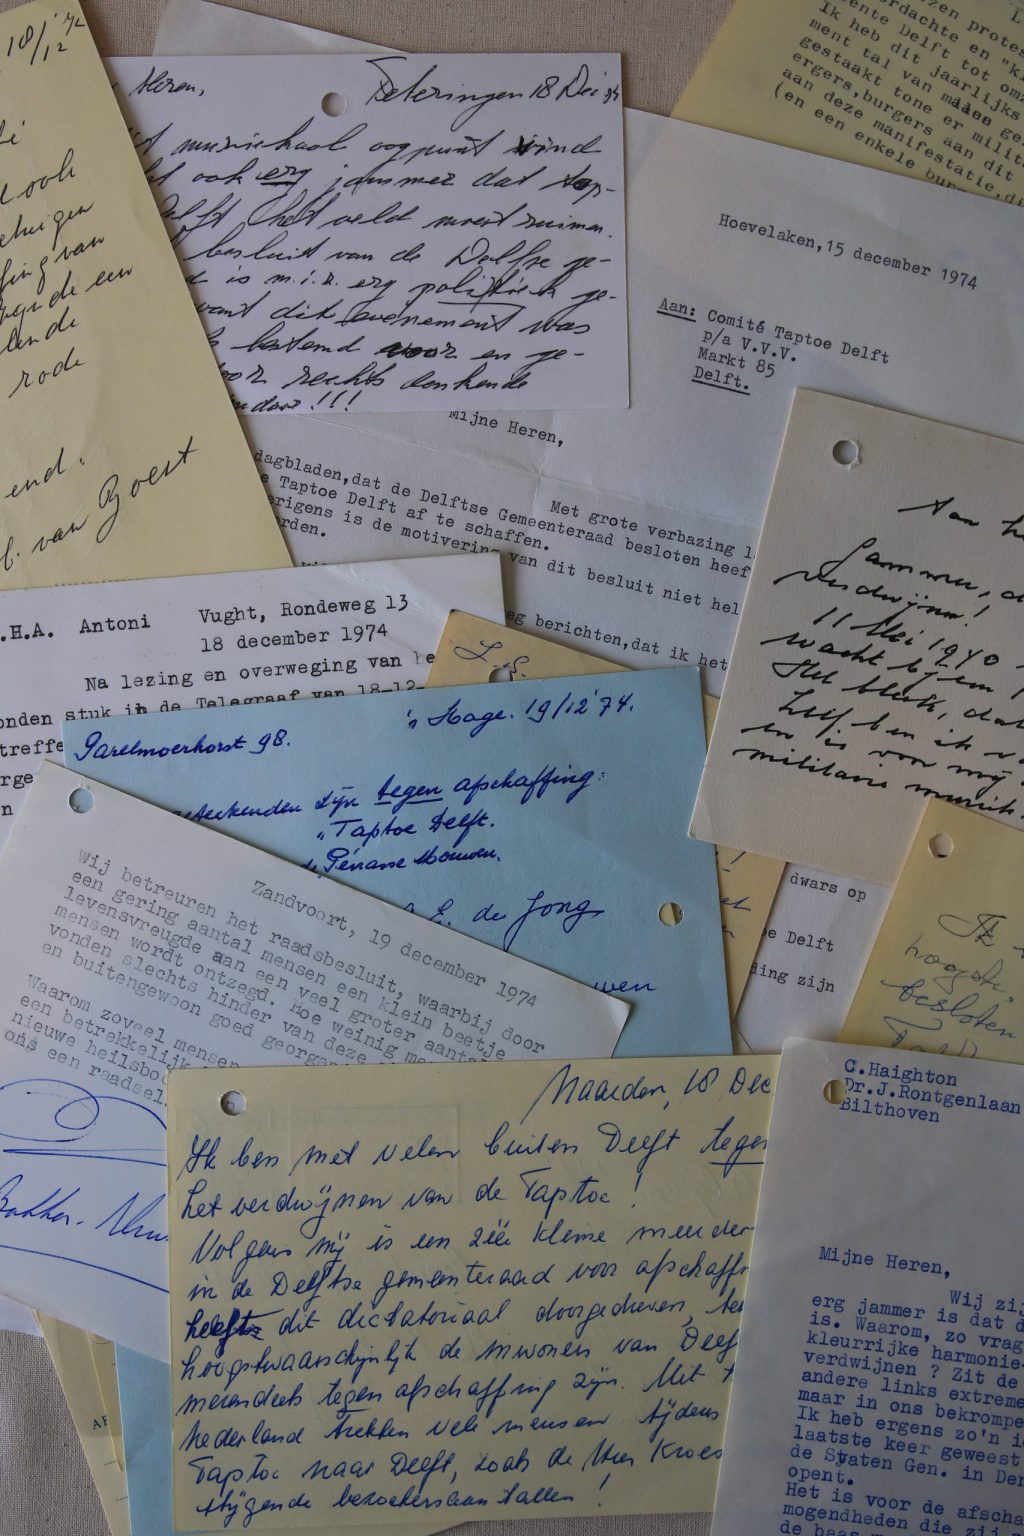 18/12 '74
ook
van
een
rode
end.
van Boest
Heren,
Teteringen 18 Dec '74
muzikaal oogpunt vind
ook erg jammer dat tap-
het veld moet ruimen.
besluit van de Delftse ge-
is m.i.z. erg politisch ge-
want dit evenement was
bestemd voor en ge-
door rechts denkende
!!!
zen protes
ordachte en "k
eente Delft tot om
Ik heb dit jaarlijks
ment tal van malen ge
gestaakt tone er milit
ergers,burgers aan dit
aan deze manifestatie,di
(en een enkele burg
Hoevelaken,15 december 1974
Aan: Comité Taptoe Delft
p/a V.V.V.
Markt 85
Delft.
Mijne Heren,
Met grote verbazing l
dagbladen,dat de Delftse Gemeenteraad besloten heef
e Taptoe Delft af te schaffen.
erigens is de motivering van dit besluit niet hel
rden.
eg berichten,dat ik het
dwars op
oe Delft
ding zijn
Aan h
Jammer, d
verdwijnen!
11 Mei 1940
wacht bij em
Het bleek, dat
Lijf ben ik v
en is voor mij
militaire muziek.
.H.A. Antoni
Vught, Rondeweg 13
18 december 1974
Na lezing en overweging van he
onden stuk in de Telegraaf van 18-12-
treffe
rge
n
L.S.
's Hage. 19/12 '74.
Parelmoerhorst 98.
geteekenden zijn tegen afschaffing:
"Taptoe Delft.
de Jong
wen
Zandvoort, 19 december 1974
Wij betreuren het raadsbesluit, waarbij door
een gering aantal mensen een klein beetje
levensvreugde aan een veel groter aantal
mensen wordt ontzegd. Hoe weinig me
vonden slechts hinder van deze
en buitengewoon goed georgan
Waarom zoveel mensen
een betrekkelijk
nieuwe heilsbo
ons een raadsel.
Bakker-
Ik
hoogste,
besloten
Naarden, 18 Dec.
Ik ben met velen buiten Delft tegen
het verdwijnen van de Taptoe!
Volgens mij is een zéér kleine meerder-
in de Delftse gemeenteraad voor afschaff
heeft dit dictatoriaal doorgedreven, ter
hoogstwaarschijnlijk de inwoners van Delf
merendeels tegen afschaffing zijn. Uit
Nederland trekken vele mensen tijdens
Taptoe naar Delft, zoals de Heer Kroes
stijgende bezoekersaantallen!
C.Haighton
Dr.J.Rontgenlaan
Bilthoven
Mijne Heren,
Wij zij
erg jammer is dat d
is. Waarom, zo vrag
kleurrijke harmonie-
verdwijnen ? Zit de
andere links extreme
maar in ons bekrompe
Ik heb ergens zo'n i
laatste keer geweest
de Staten Gen. in Den
opent.
Het is voor de afscha
mogendheden die zij
de baas
AF